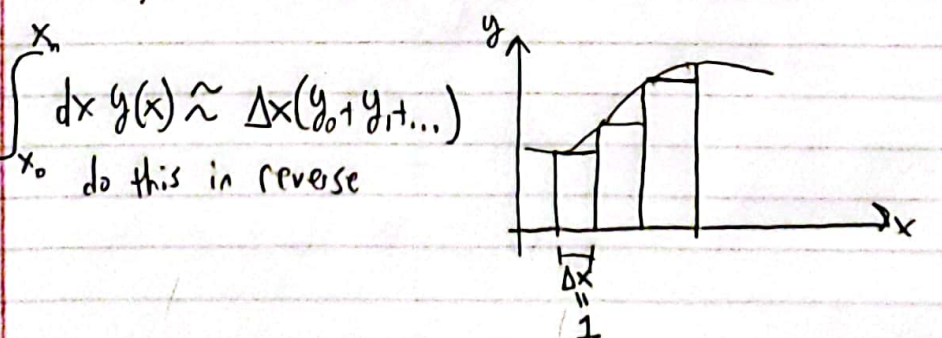 ∫_{x₀}^{xₙ} dx y(x) ≈ Δx(y₀+y₁+...)
do this in reverse
y
x
Δx
=
1